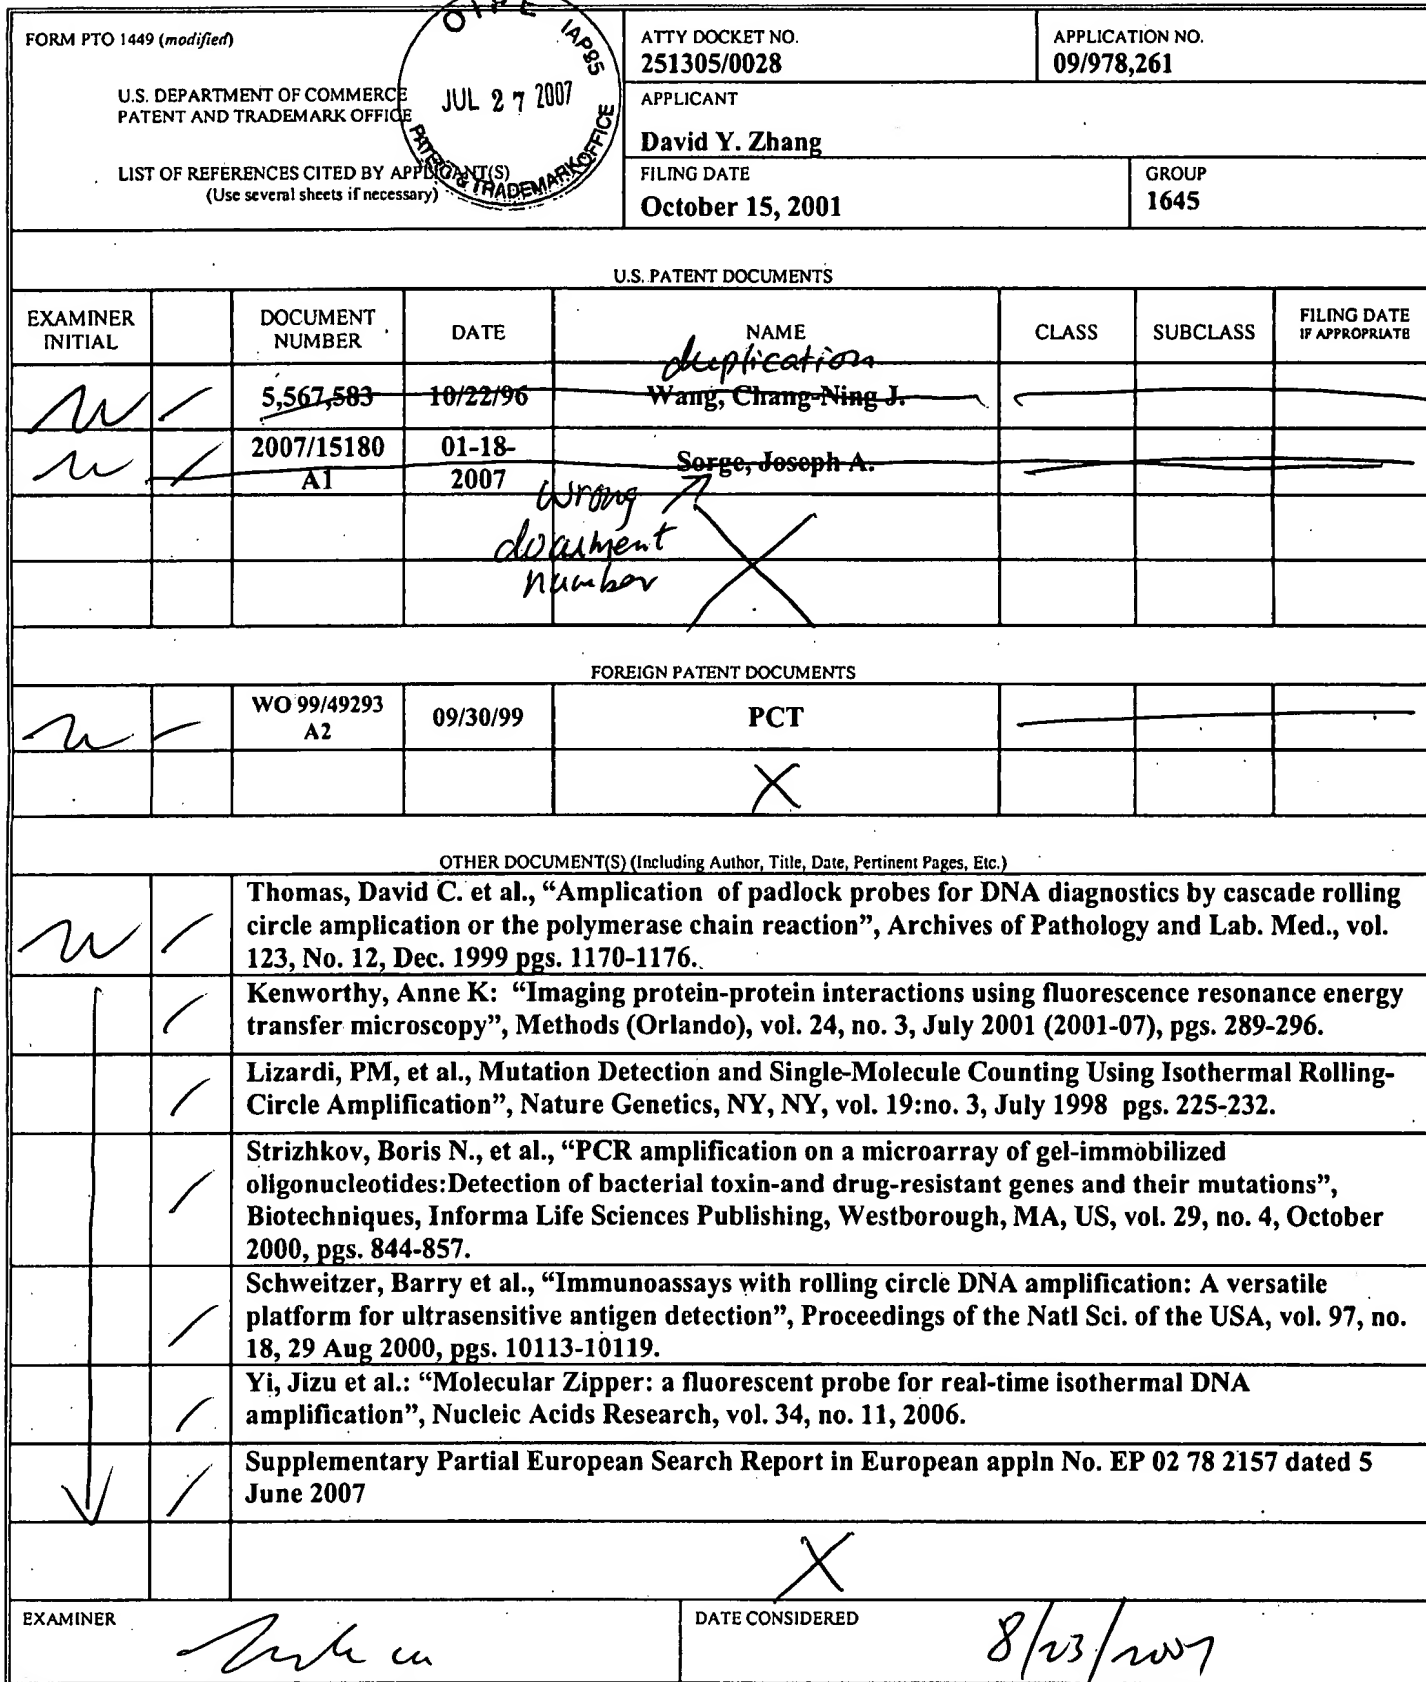 FORM PTO 1449 (modified)
U.S. DEPARTMENT OF COMMERCE
PATENT AND TRADEMARK OFFICE
LIST OF REFERENCES CITED BY APPLICANT(S)
(Use several sheets if necessary)
OIPE IAP85
JUL 27 2007
PATENT & TRADEMARK OFFICE
ATTY DOCKET NO.
251305/0028
APPLICATION NO.
09/978,261
APPLICANT
David Y. Zhang
FILING DATE
October 15, 2001
GROUP
1645
U.S. PATENT DOCUMENTS
EXAMINER INITIAL
DOCUMENT NUMBER
DATE
NAME
CLASS
SUBCLASS
FILING DATE IF APPROPRIATE
duplication
5,567,583 10/22/96 Wang, Chang-Ning J.
2007/15180 A1
01-18-2007
Sorge, Joseph A.
wrong
document
number
FOREIGN PATENT DOCUMENTS
WO 99/49293 A2
09/30/99
PCT
OTHER DOCUMENT(S) (Including Author, Title, Date, Pertinent Pages, Etc.)
Thomas, David C. et al., “Amplication of padlock probes for DNA diagnostics by cascade rolling
circle amplication or the polymerase chain reaction”, Archives of Pathology and Lab. Med., vol.
123, No. 12, Dec. 1999 pgs. 1170-1176.
Kenworthy, Anne K: “Imaging protein-protein interactions using fluorescence resonance energy
transfer microscopy”, Methods (Orlando), vol. 24, no. 3, July 2001 (2001-07), pgs. 289-296.
Lizardi, PM, et al., Mutation Detection and Single-Molecule Counting Using Isothermal Rolling-
Circle Amplification”, Nature Genetics, NY, NY, vol. 19:no. 3, July 1998 pgs. 225-232.
Strizhkov, Boris N., et al., “PCR amplification on a microarray of gel-immobilized
oligonucleotides:Detection of bacterial toxin-and drug-resistant genes and their mutations”,
Biotechniques, Informa Life Sciences Publishing, Westborough, MA, US, vol. 29, no. 4, October
2000, pgs. 844-857.
Schweitzer, Barry et al., “Immunoassays with rolling circle DNA amplification: A versatile
platform for ultrasensitive antigen detection”, Proceedings of the Natl Sci. of the USA, vol. 97, no.
18, 29 Aug 2000, pgs. 10113-10119.
Yi, Jizu et al.: “Molecular Zipper: a fluorescent probe for real-time isothermal DNA
amplification”, Nucleic Acids Research, vol. 34, no. 11, 2006.
Supplementary Partial European Search Report in European appln No. EP 02 78 2157 dated 5
June 2007
EXAMINER
DATE CONSIDERED
8/23/2007